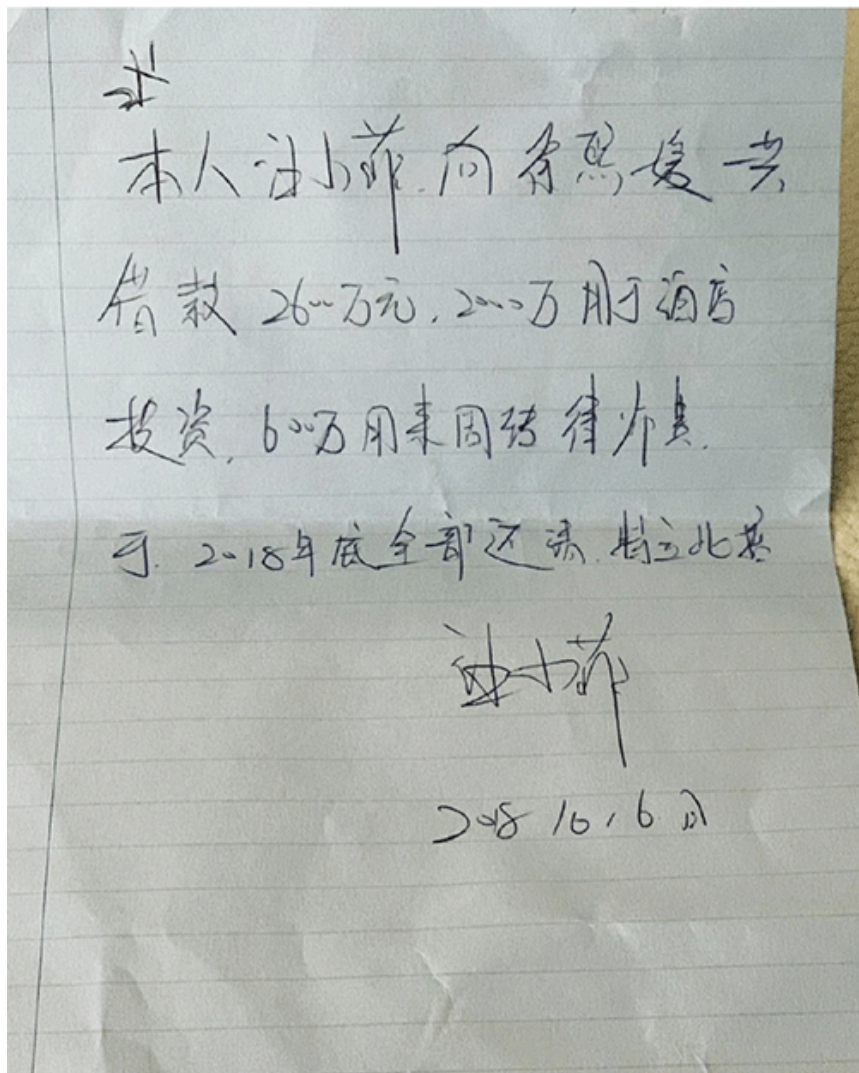 本人汪小菲.向徐熙媛共
借款2600万元.2000万用于酒店
投资.600万用来周转律师费.
于.2018年底全部还清.特立此据
汪小菲
2018 10.6日